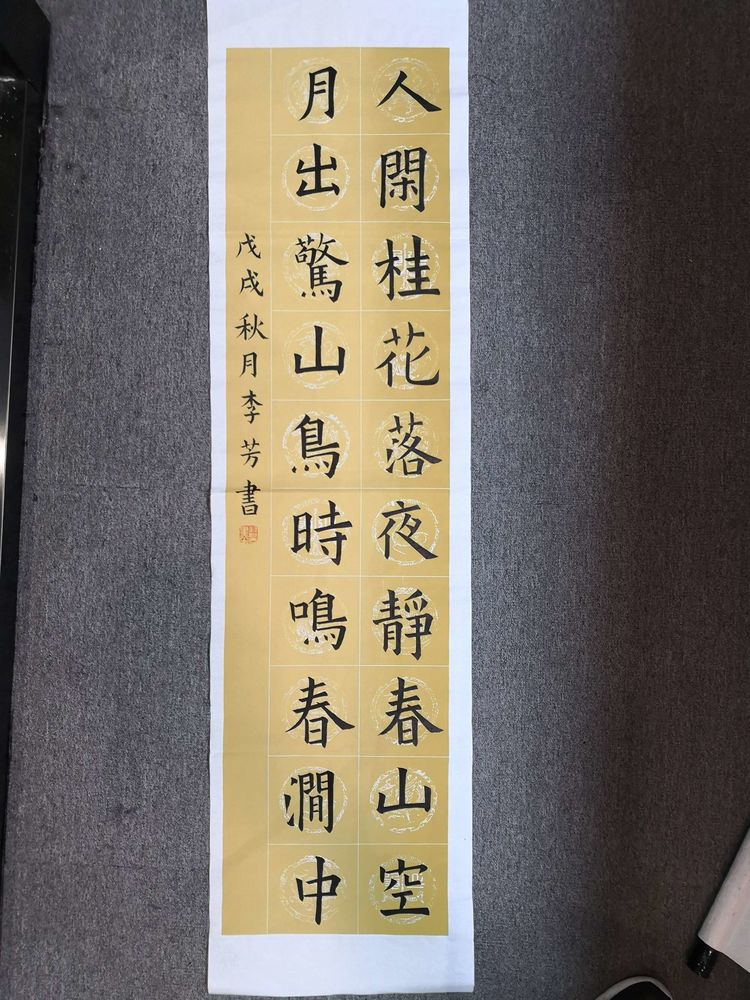 人閑桂花落夜靜春山空
月出驚山鳥時鳴春澗中
戊戌秋月李芳書